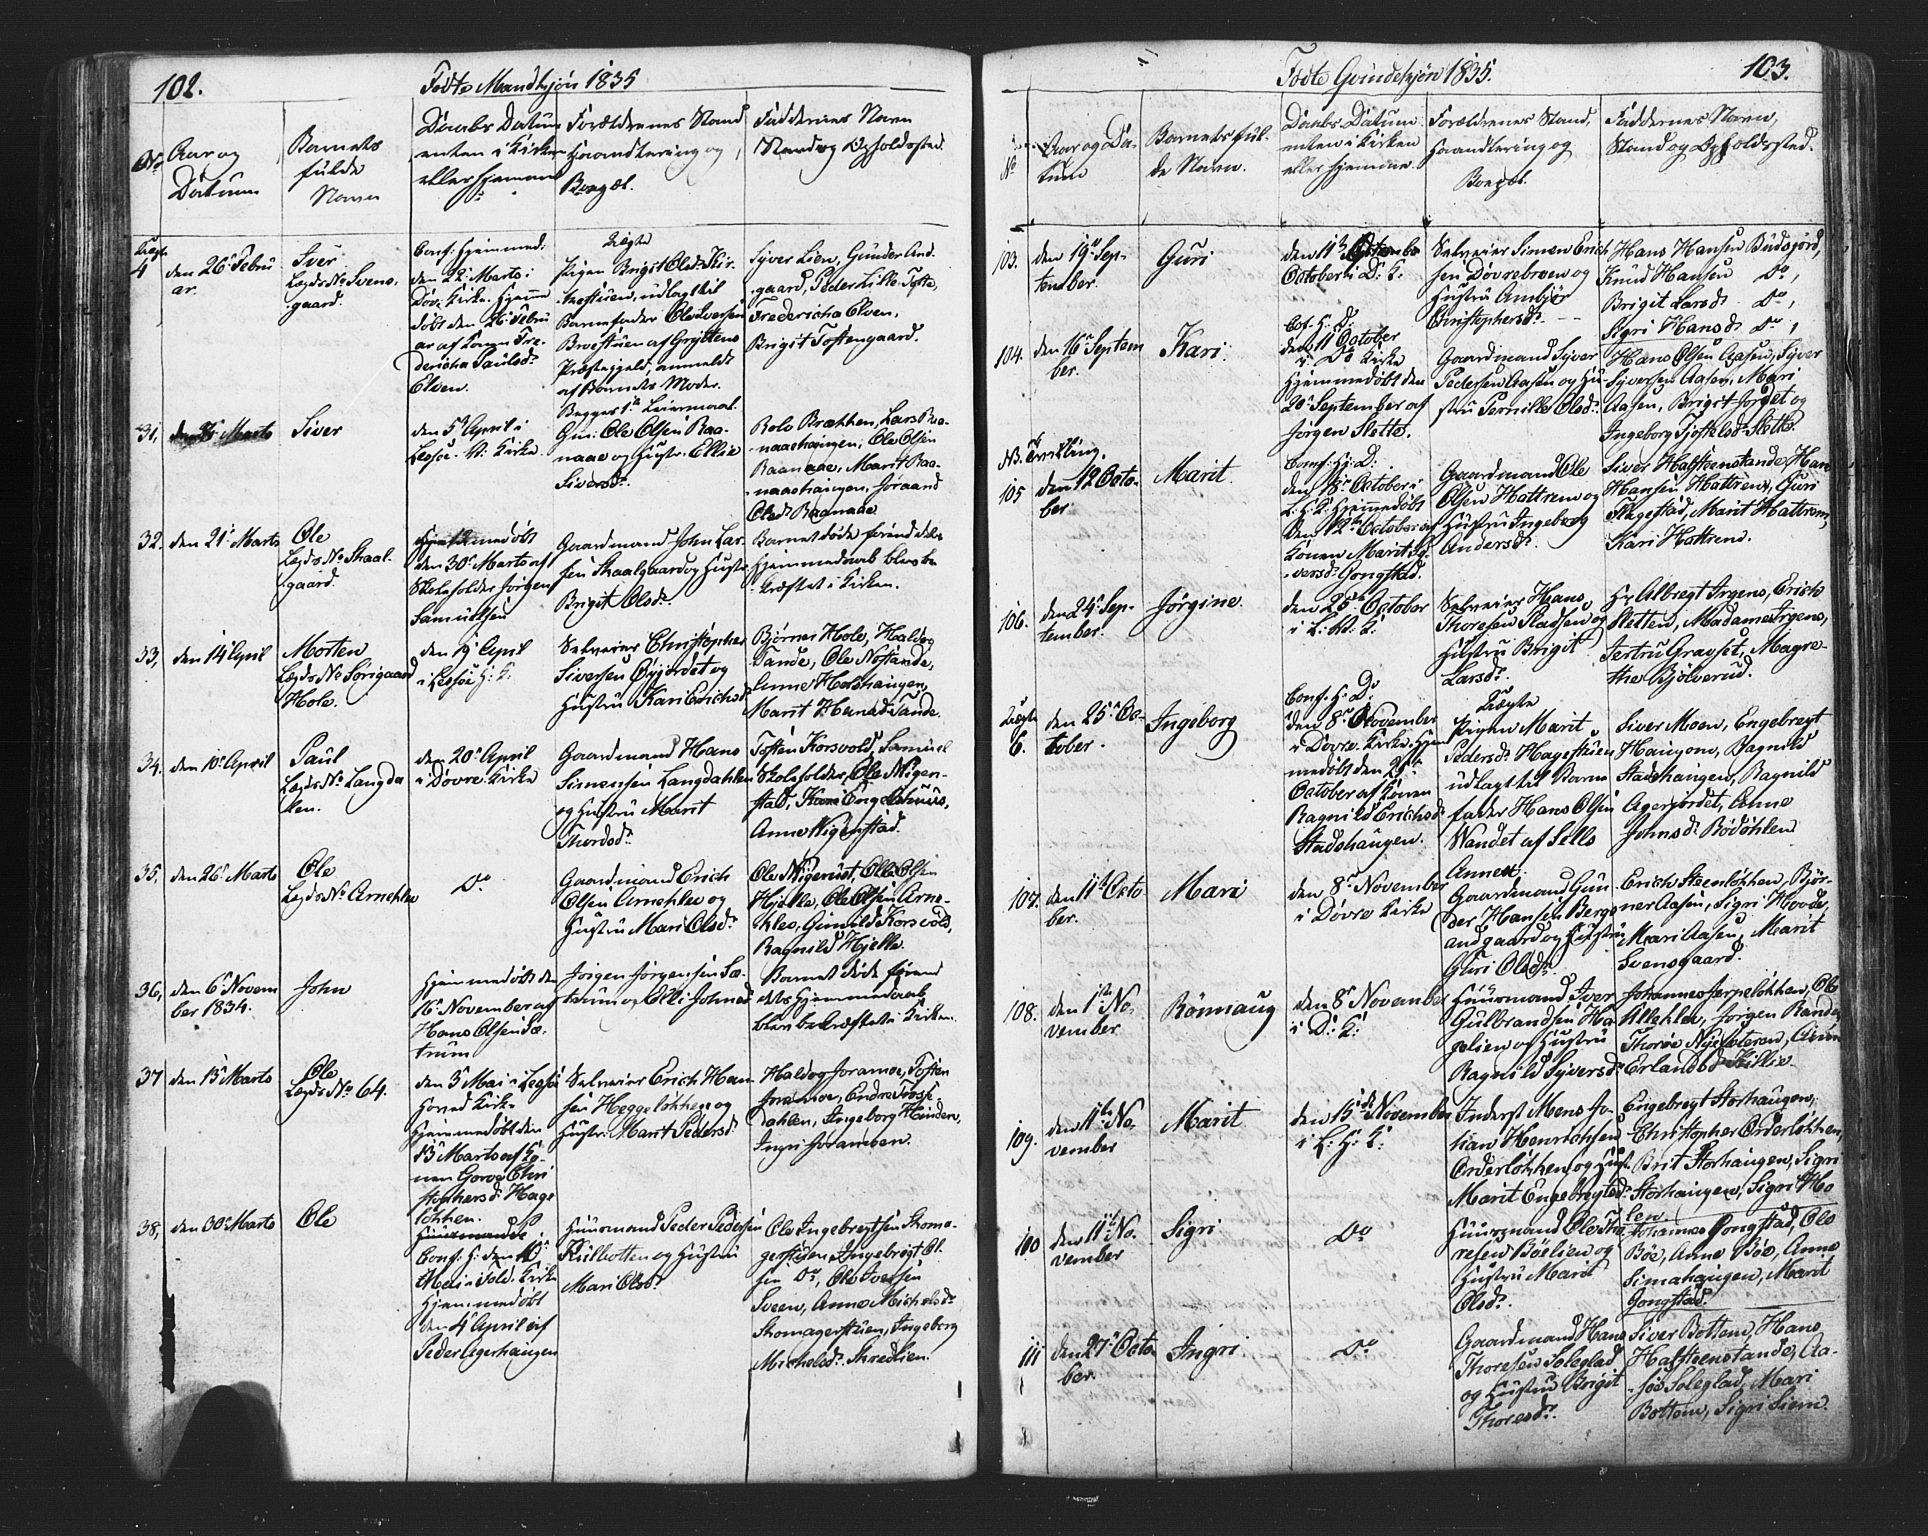 102.
Fødte Mandkjøn 1835
No
Aar og
Datum
Barnets
fulde
Navn
Daabs Datum
enten i Kirken
eller hjemme
Forældrenes Stand
Haandtering og
Bopæl.
Faddernes Navn
Stand og Opholdssted.
Uægte
4
den 26 Febru
ar.
Sver
Lægds No Svens-
gaard.
Conf. Hjemmed:
den 22 Marts i
Dov. Kirke. Hjemme
døbt den 26 Febru
ar af Konen Fre-
dericha Paulsdr
Elven.
Uægte
Pigen Brigit Olsdr Kir-
kestuen, udlagt til
Barnefader Ole Iversen
Brostuen af Gryttens
Præstegjeld, anmeldt
af Barnets Moder.
Begges 1te Leiermaal.
Syver Lien, Gunder And-
gaard, Peder Lille Tofte,
Fredericha Elven,
Brigit Toftengaard.
31,
Marts
Siver
den 5 April i
Lessøe V. Kirke.
Gm: Ole Olsen Raa-
naae og Hustr. Ellie
Siversdr.
Rolv Brækken, Lars Raa-
naaehaugen, Ole Olsen
Raanaae, Marit Raa-
naaehaugen, Joraand
Olsdr Raanaae.
32.
den 21 Marts
Ole
Lægds No Skaal-
gaard.
Hjemmedøbt
den 30 Marts af
Skoleholder Jørgen
Samuelsen
Gaardmand John Lar-
sen Skaalgaard og Hustr.
Brigit Olsdr.
Barnet døde førend dets
Hjemmedaab blev be-
kræftet i Kirken.
33,
den 14 April
Morten
Lægds No Sørigaard
Hole.
den 19 April
i Lessøe H: K.
Selveier Christopher
Siversen Øygjordet og
Hustru Kari Erichsdr
Bjørner Hole, Haldog
Tande, Ole Nostande,
Anne Holshaugen,
Marit Hansdr Tande.
34.
den 10 April
Paul
Lægds No Langda
len.
den 20 April
i Dovre Kirke
Gaardmand Hans
Simensen Langdahlen
og Hustru Marit
Thordsdr
Tosten Korsvold, Samuel
Skoleholder, Ole Nigen-
stad, Kari Engelshuus,
Anne Nigenstad.
35,
den 26 Marts
Ole
Lægds No Arneklev
Do
Gaardmand Erich
Olsen Arneklev og
Hustru Mari Olsdr
Ole Nigerust, Ole Olsen
Hjelle, Ole Olsen Arne-
klev, Gunild Korsvold,
Ragnild Hjelle.
36,
den 6 Novem
ber 1834.
John
Hjemmedøbt den
16 November af
Hans Olsen Sæ-
trum
Jørgen Jørgensen Sæ-
trum og Elli Johnsdr
Barnet døde førend
dets Hjemmedaab
blev bekræftet i Kirken.
37
den 13 Marts
Ole
Lægds No 64.
den 3 Mai i Lessøe
Hoved Kirke
Hjemmedøbt den
13 Marts af Ko-
nen Gorvo Chri
stophersdr Hage
løkken.
Selveier Erich Han
sen Heggeløkken og
Hustr. Marit Pedersdr
Haldog Joramoe, Tosten
Joramoe, Endre Tosse
Dahlen, Ingeborg Hauden,
Ingri Joramoen.
38,
den 30 Marts
Ole
Conf. H. den 10
Mai i Fold. Kirke
Hjemmedøbt
den 4 April af
Peder Agerhaugen
Huusmand Peder Pedersen
Kulbotten og Hustru
Mari Olsdr
Ole Ingebregtsen Skoma-
gerstuen, Ingebregt Ol-
sen Do, Ole Iversen
Sveen, Anne Michelsdr
Skomagerstuen, Ingeborg
Michelsdr Skredlien.
Fødte Qvindekjøn 1835.
103.
No
Aar og Da-
tum
Barnets ful-
de Navn.
Daabs-Datum
enten i Kirken
eller hjemme.
Forældrenes Stand,
Haandtering og
Bopæl.
Faddernes Navn,
Stand og Opholdssted.
103.
den 19 Sep-
tember.
Guri
den 11te
October i D. K:
Selveier Simen Erich
sen Dovrebroen og
Hustru Ambjør
Christophersdr
Hans Hansen Budsgord,
Knud Hansen Do,
Brigit Larsdr Do,
Sigri Hansdr Do,
104.
den 16 Septem
ber.
Kari.
Cof. H. D:
den 11 October
i Do Kirke
Hjemmedøbt den
20 September af
Jørgen Slette.
Gaardmand Syver
Pedersen Aasen og Hu-
stru Pernille Olsdr
Hans Olsen Aasen, Syver
Syversen Aasen, Mari
Aasen, Brigit Jorget og
Ingeborg Tjostelsdr Slette.
NB. Tvilling.
105
den 12 Octo-
ber
Marit.
Comf. Hj. D:
den 18 October i
L. H. K. Hjemmedøbt
den 12te October af
Konen Marit Sy-
versdr Gongstad.
Gaardmand Ole
Olsen Hattrem og
Hustru Ingeborg
Andersdr
Siver Halfstenstande, Han
Hansen Hattrem, Guri
Flugestad, Marit Hattrem,
Kari Hattrem.
106.
den 24 Sep-
tember.
Jørgine.
den 25 October
i L: V. K:
Selveier Hans
Thoresen Stadsen og
Hustru Brigit
Larsdr
Hr Albregt Irgens, Erich
Sletten, Madame Irgens,
Jertru Gravset, Magre-
the Bjølverud.
Uægte
6.
den 25 Oc-
tober.
Ingeborg
Conf. H. D.
den 8 November
i Dovre Kirke. Hjem
medøbt den 27
October af Konen
Ragnild Erichsdr
Stadshaugen.
Uægte
Pigen Marit
Pedersdr Hagestuen
udlagt til Barne
fader Hans Olsen
Wandet af Sells
Annex.
Siver Moen, Engebregt
Haugom, Ragnild
Stadshaugen, Ragnild
Agerjordet, Anne
Johnsdr Bødøhlen
107.
den 11te Octo
ber.
Mari
den 8 November
i Dovre Kirke
Gaardmand Gun
der Hansen Bergs
andgaard og Hustru
Guri Olsdr
Erich Steenløkken, Bjør-
ner Aasen, Sigri Hovde,
Mari Aasen, Marit
Svensgaard.
108.
den 1ste No-
vember
Rønnaug
den 8 November
i D: K:
Huusmand Iver
Gulbrandsen Ha
gelien og Hustru
Ragnild Syversdr
Johannes Jerpeløkken, Ole
Ulleklev, Jorgen Rande,
Thorøe Nyesæteren, Anne
Erlandsdr Killie.
109.
den 11te No-
vember
Marit
den 15de November
i L: H: K:
Inderst Mens Jo-
han Henrichsen
Orderløkken og Hust.
Marit Engebregtsdr
Engebregt Storhaugen,
Christopher Orderløkken,
Brit Storhaugen, Sigri
Storhaugen, Sigri Ho
len
110
den 11te No-
vember
Sigri
Do
Huusmand Ole Tho
resen Bøelien og
Hustru Marit
Olsdr.
Johannes Gongstad, Ole
Bøe, Anne Bøe, Anne
Simahaugen, Marit
Gongstad.
111
den 27 Octo-
ber
Ingri
Do
Gaardmand Hans
Thoresen Soleglad
og Hustru Brigit
Thoresdr.
Siver Bottem, Hans
Halfsteenstande, Aa-
søe Soleglad, Mari
Bottem, Sigri Siem.